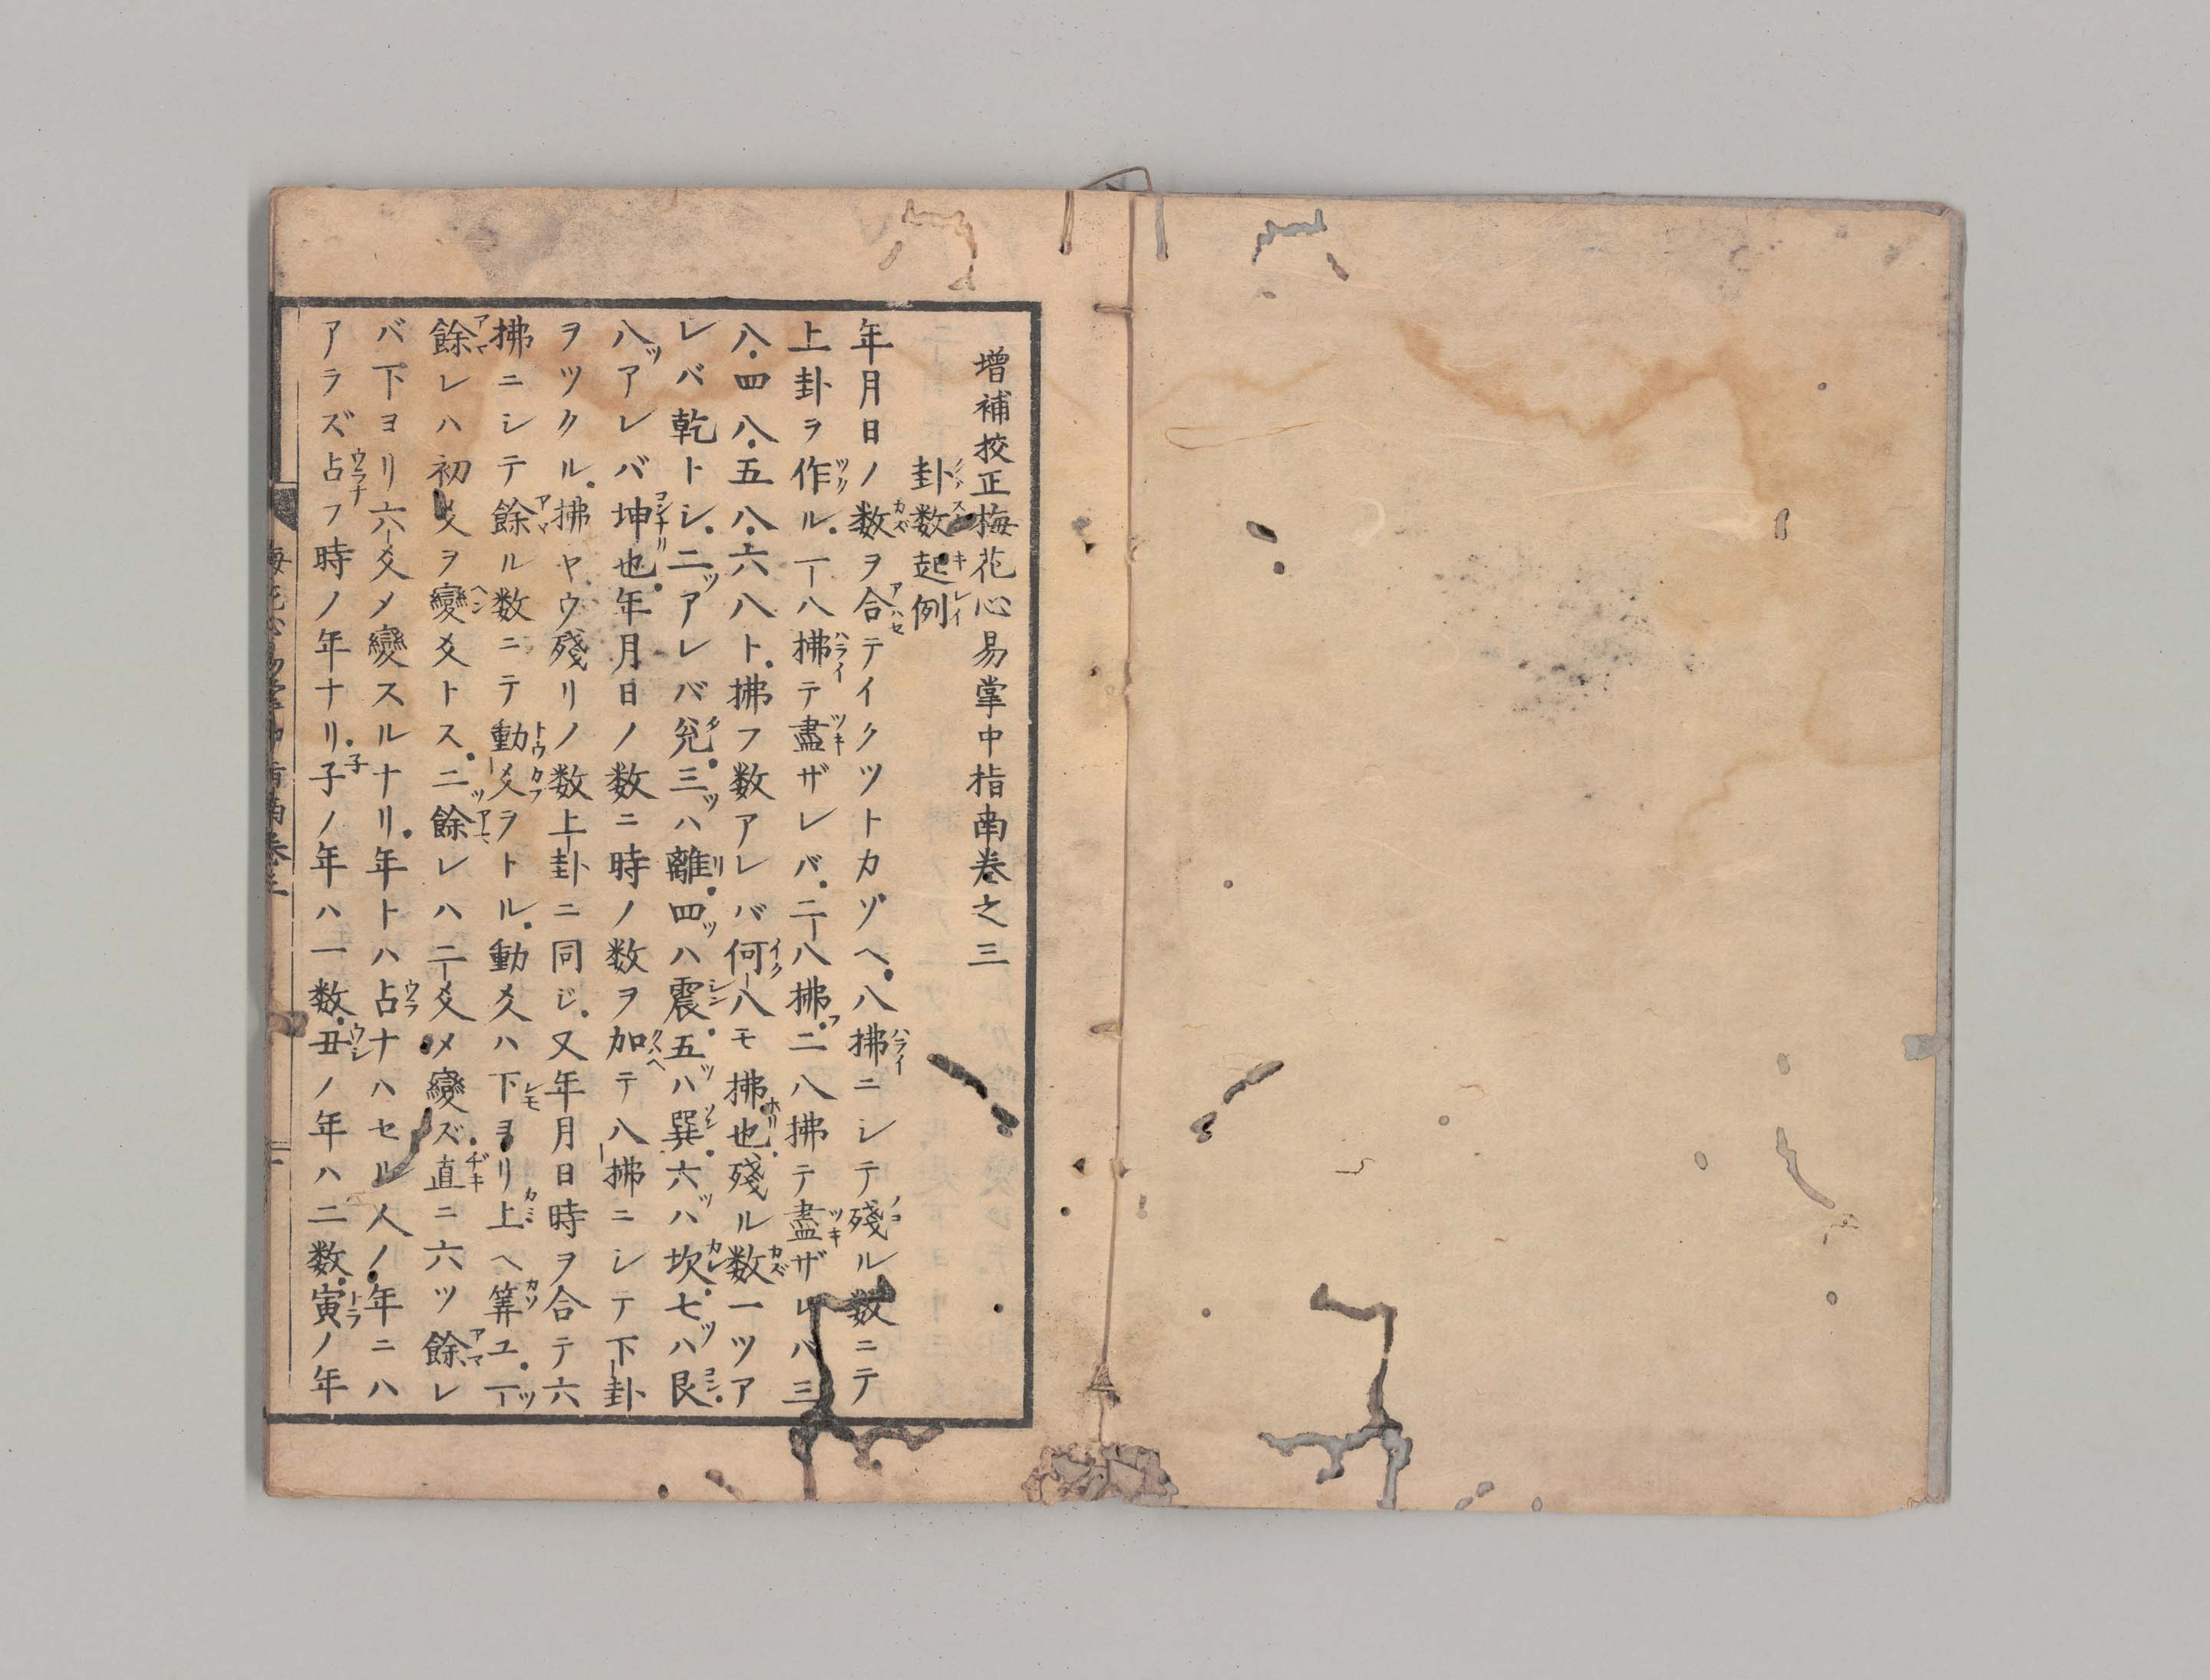 増補挍正梅花心易掌中指南巻之三
卦数起例
年月日ノ数ヲ合テイクツトカゾヘ八拂ニシテ残ル数ニテ
上卦ヲ作ル一八拂テ盡ザレバ二八拂二八拂テ盡ザレバ三
八四八五八六八ト拂フ数アレバ何八モ拂也残ル数一ツア
レバ乾トシ二ツアレバ兊三ツハ離四ツハ震五ツハ巽六ツハ坎七ツハ艮
八ツアレバ坤也年月日ノ数ニ時ノ数ヲ加テ八拂ニシテ下卦
ヲツクル拂ヤウ残リノ数上卦ニ同ジ又年月日時ヲ合テ六
拂ニシテ餘ル数ニテ動爻ヲトル動爻ハ下ヨリ上ヘ筭ユ一ツ
餘レハ初爻ヲ變爻トス二ツ餘レハ二爻メ變ズ直ニ六ツ餘レ
バ下ヨリ六爻メ變スルナリ年トハ占ナハセル人ノ年ニハ
アラズ占フ時ノ年ナリ子ノ年ハ一数丑ノ年ハ二数寅ノ年